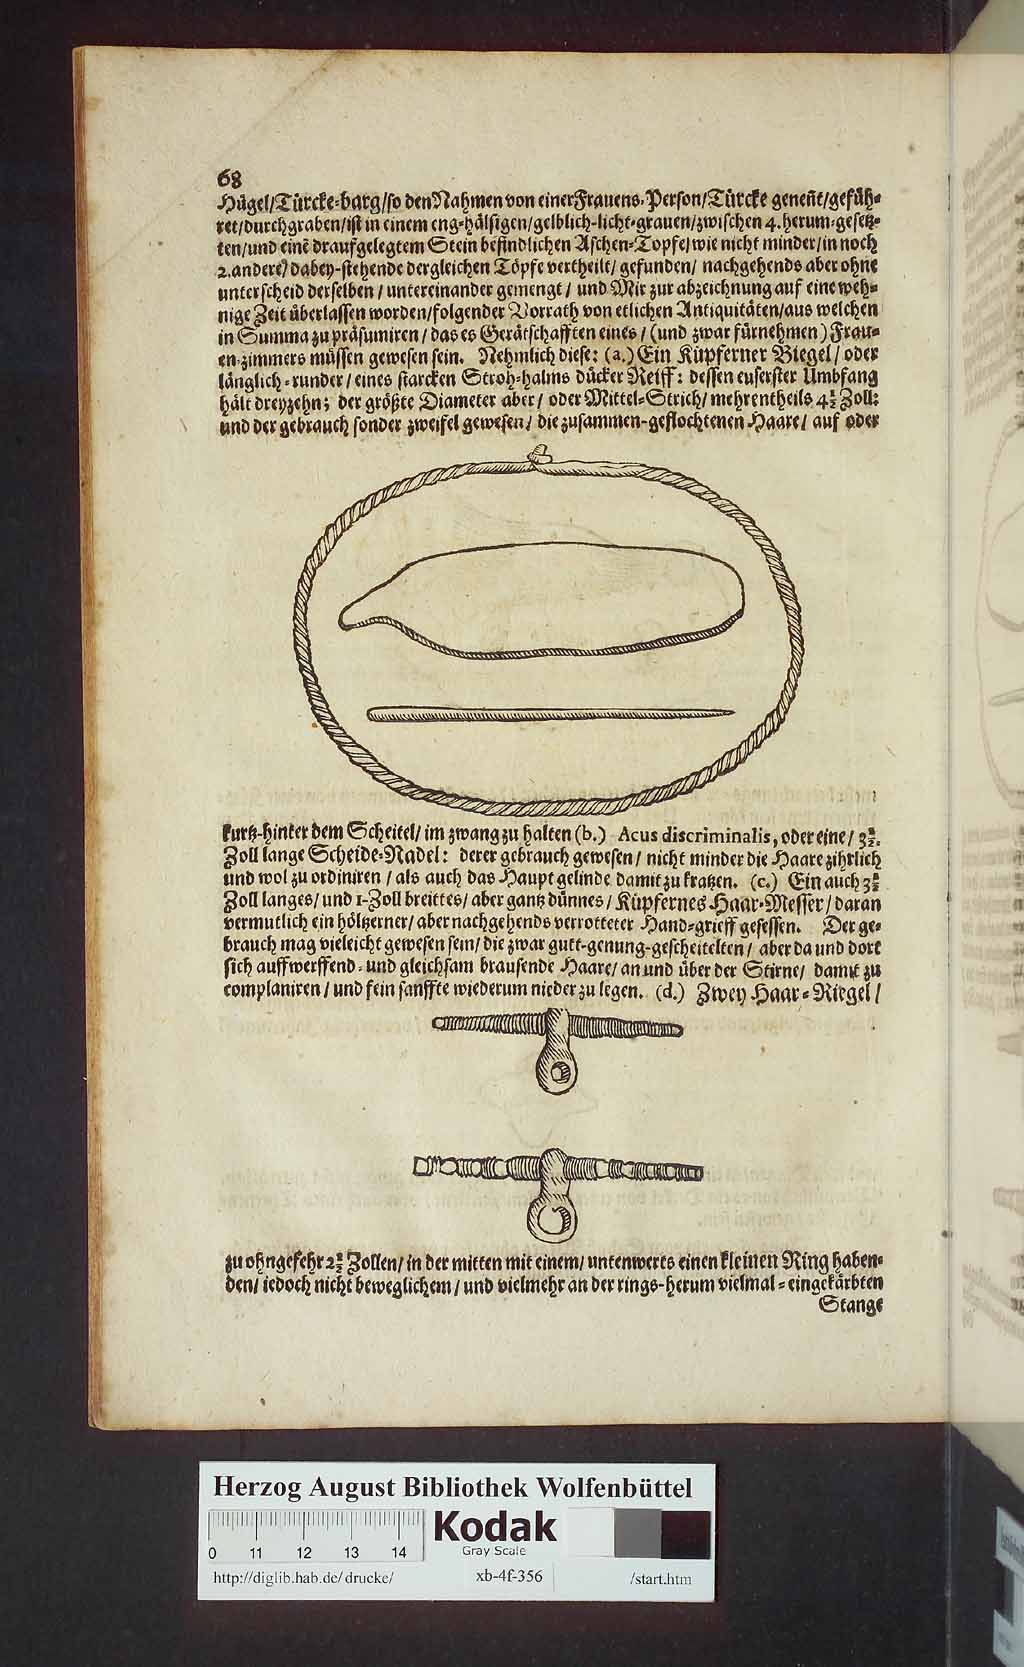 68
Hügel/Türcke-barg/so den Nahmen von einer Frauens-Person/Türcke geneñt/gefüh-
ret/durchgraben/ist in einem eng-hälsigen/gelblich-licht-grauen/zwischen 4. herum-gesetz-
ten/und einē draufgelegtem Stein befindlichen Aschen-Topfe/wie nicht minder/in noch
2. andere/dabey-stehende dergleichen Töpfe vertheilt/gefunden/nachgehends aber ohne
unterscheid derselben/untereinander gemengt/und Mir zur abzeichnung auf eine weh-
nige Zeit überlassen worden/folgender Vorrath von etlichen Antiquitäten/aus welchen
in Summa zu präsumiren/das es Gerätschafften eines/(und zwar fürnehmen) Frau-
en-zimmers müssen gewesen sein. Nehmlich diese: (a.) Ein Küpferner Biegel/oder
länglich-runder/eines starcken Stroh-halms dücker Reiff: dessen euserster Umbfang
hält dreyzehn; der größte Diameter aber/oder Mittel-Strich/mehrentheils 4½ Zoll:
und der gebrauch sonder zweifel gewesen/die zusammen-geflochtenen Haare/auf oder
kurtz-hinter dem Scheitel/im zwang zu halten (b.) Acus discriminalis, oder eine/3½.
Zoll lange Scheide-Nadel: derer gebrauch gewesen/nicht minder die Haare zihrlich
und wol zu ordiniren/als auch das Haupt gelinde damit zu kratzen. (c.) Ein auch 3½
Zoll langes/und 1-Zoll breittes/aber gantz dünnes/Küpfernes Haar-Messer/daran
vermutlich ein höltzerner/aber nachgehends verrotteter Hand-grieff gesessen. Der ge-
brauch mag vieleicht gewesen sein/die zwar gutt-genung-gescheitelten/aber da und dort
sich auffwerffend-und gleichsam brausende Haare/an und über der Stirne/damit zu
complaniren/und fein sanffte wiederum nieder zu legen. (d.) Zwey Haar-Riegel/
zu ohngefehr 2½ Zollen/in der mitten mit einem/untenwerts einen kleinen Ring haben-
den/iedoch nicht beweglichem/und vielmehr an der rings-herum vielmal-eingekärbten
Stange
Herzog August Bibliothek Wolfenbüttel
0 11 12 13 14
Kodak
Gray Scale
http://diglib.hab.de/drucke/ xb-4f-356 /start.htm